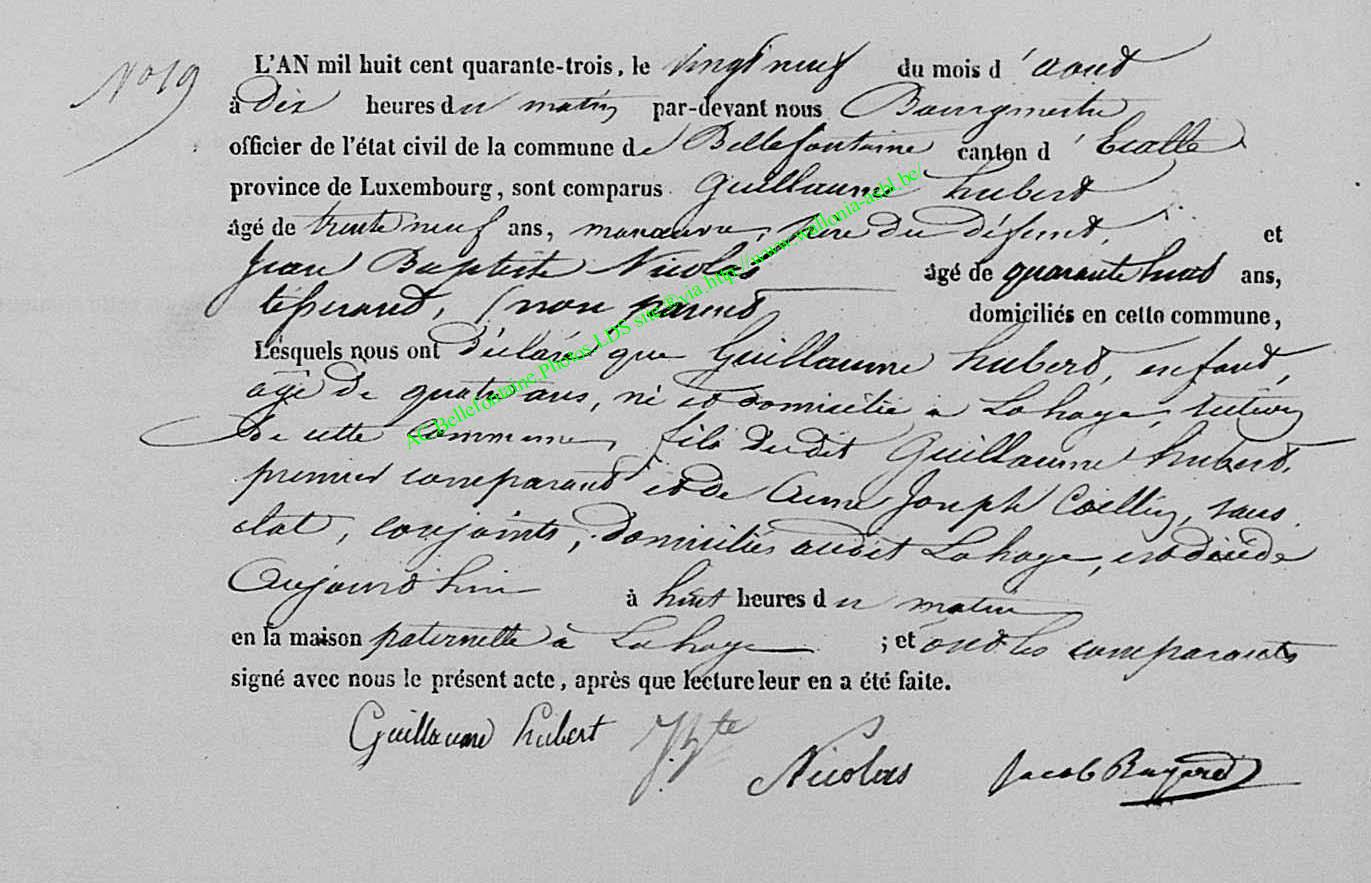 No 19
L'AN mil huit cent quarante-trois, le vingt neuf du mois d'août
à dix heures du matin par-devant nous Bourgmestre
officier de l'état civil de la commune de Bellefontaine canton d'Etalle
province de Luxembourg, sont comparus Guillaume hubert
âgé de trente neuf ans, manœuvre, père du défunt, et
Jean Baptiste Nicolas âgé de quarante huit ans,
tisserand, (non parent domiciliés en cette commune,
Lesquels nous ont déclaré que Guillaume hubert, enfant,
âgé de quatre ans, né et domicilié a Lahage,
de cette commune, fils dudit Guillaume hubert,
premier comparant et de Anne Joseph Collin, sans
état, conjoints, domiciliés audit Lahage, est décédé
Aujourd'hui à huit heures du matin
en la maison paternelle à Lahage ; et ont les comparants
signé avec nous le présent acte, après que lecture leur en a été faite.
Guillaume hubert J Bte
Nicolas Jacob
AC Bellefontaine Photos LDS site via http://www.wallonia-asbl.be/